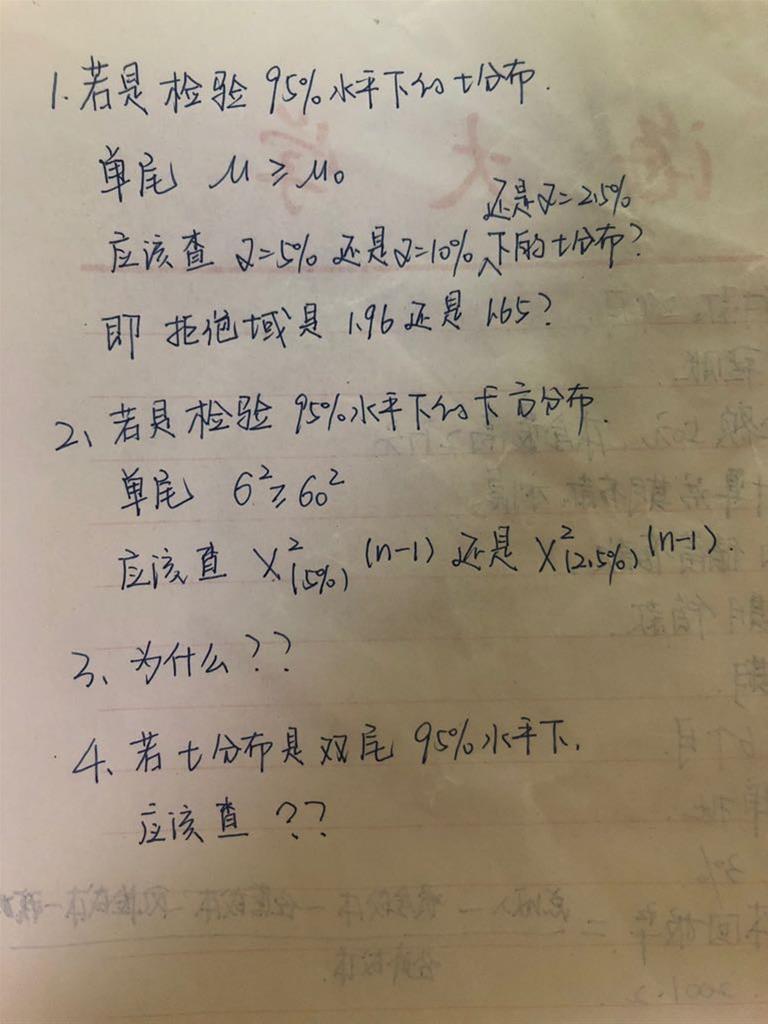 1. 若是检验95%水平下的t分布.
单尾 μ≥μ0
还是α=2.5%
应该查 α=5% 还是α=10%下的t分布?
即 拒绝域是 1.96 还是 1.65?
2、若是检验95%水平下的卡方分布.
单尾 6²≥6₀²
应该查 X²(5%) (n-1) 还是 X²(2.5%) (n-1).
3、为什么??
4、若t分布是双尾95%水平下,
应该查 ??